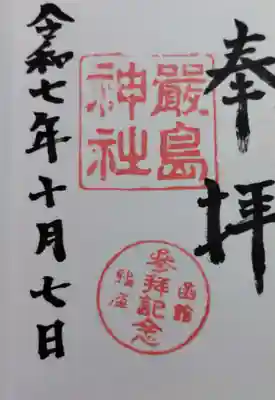 奉拝
厳島
神社
函館
参拝記念
鮫澗
令和七年十月七日